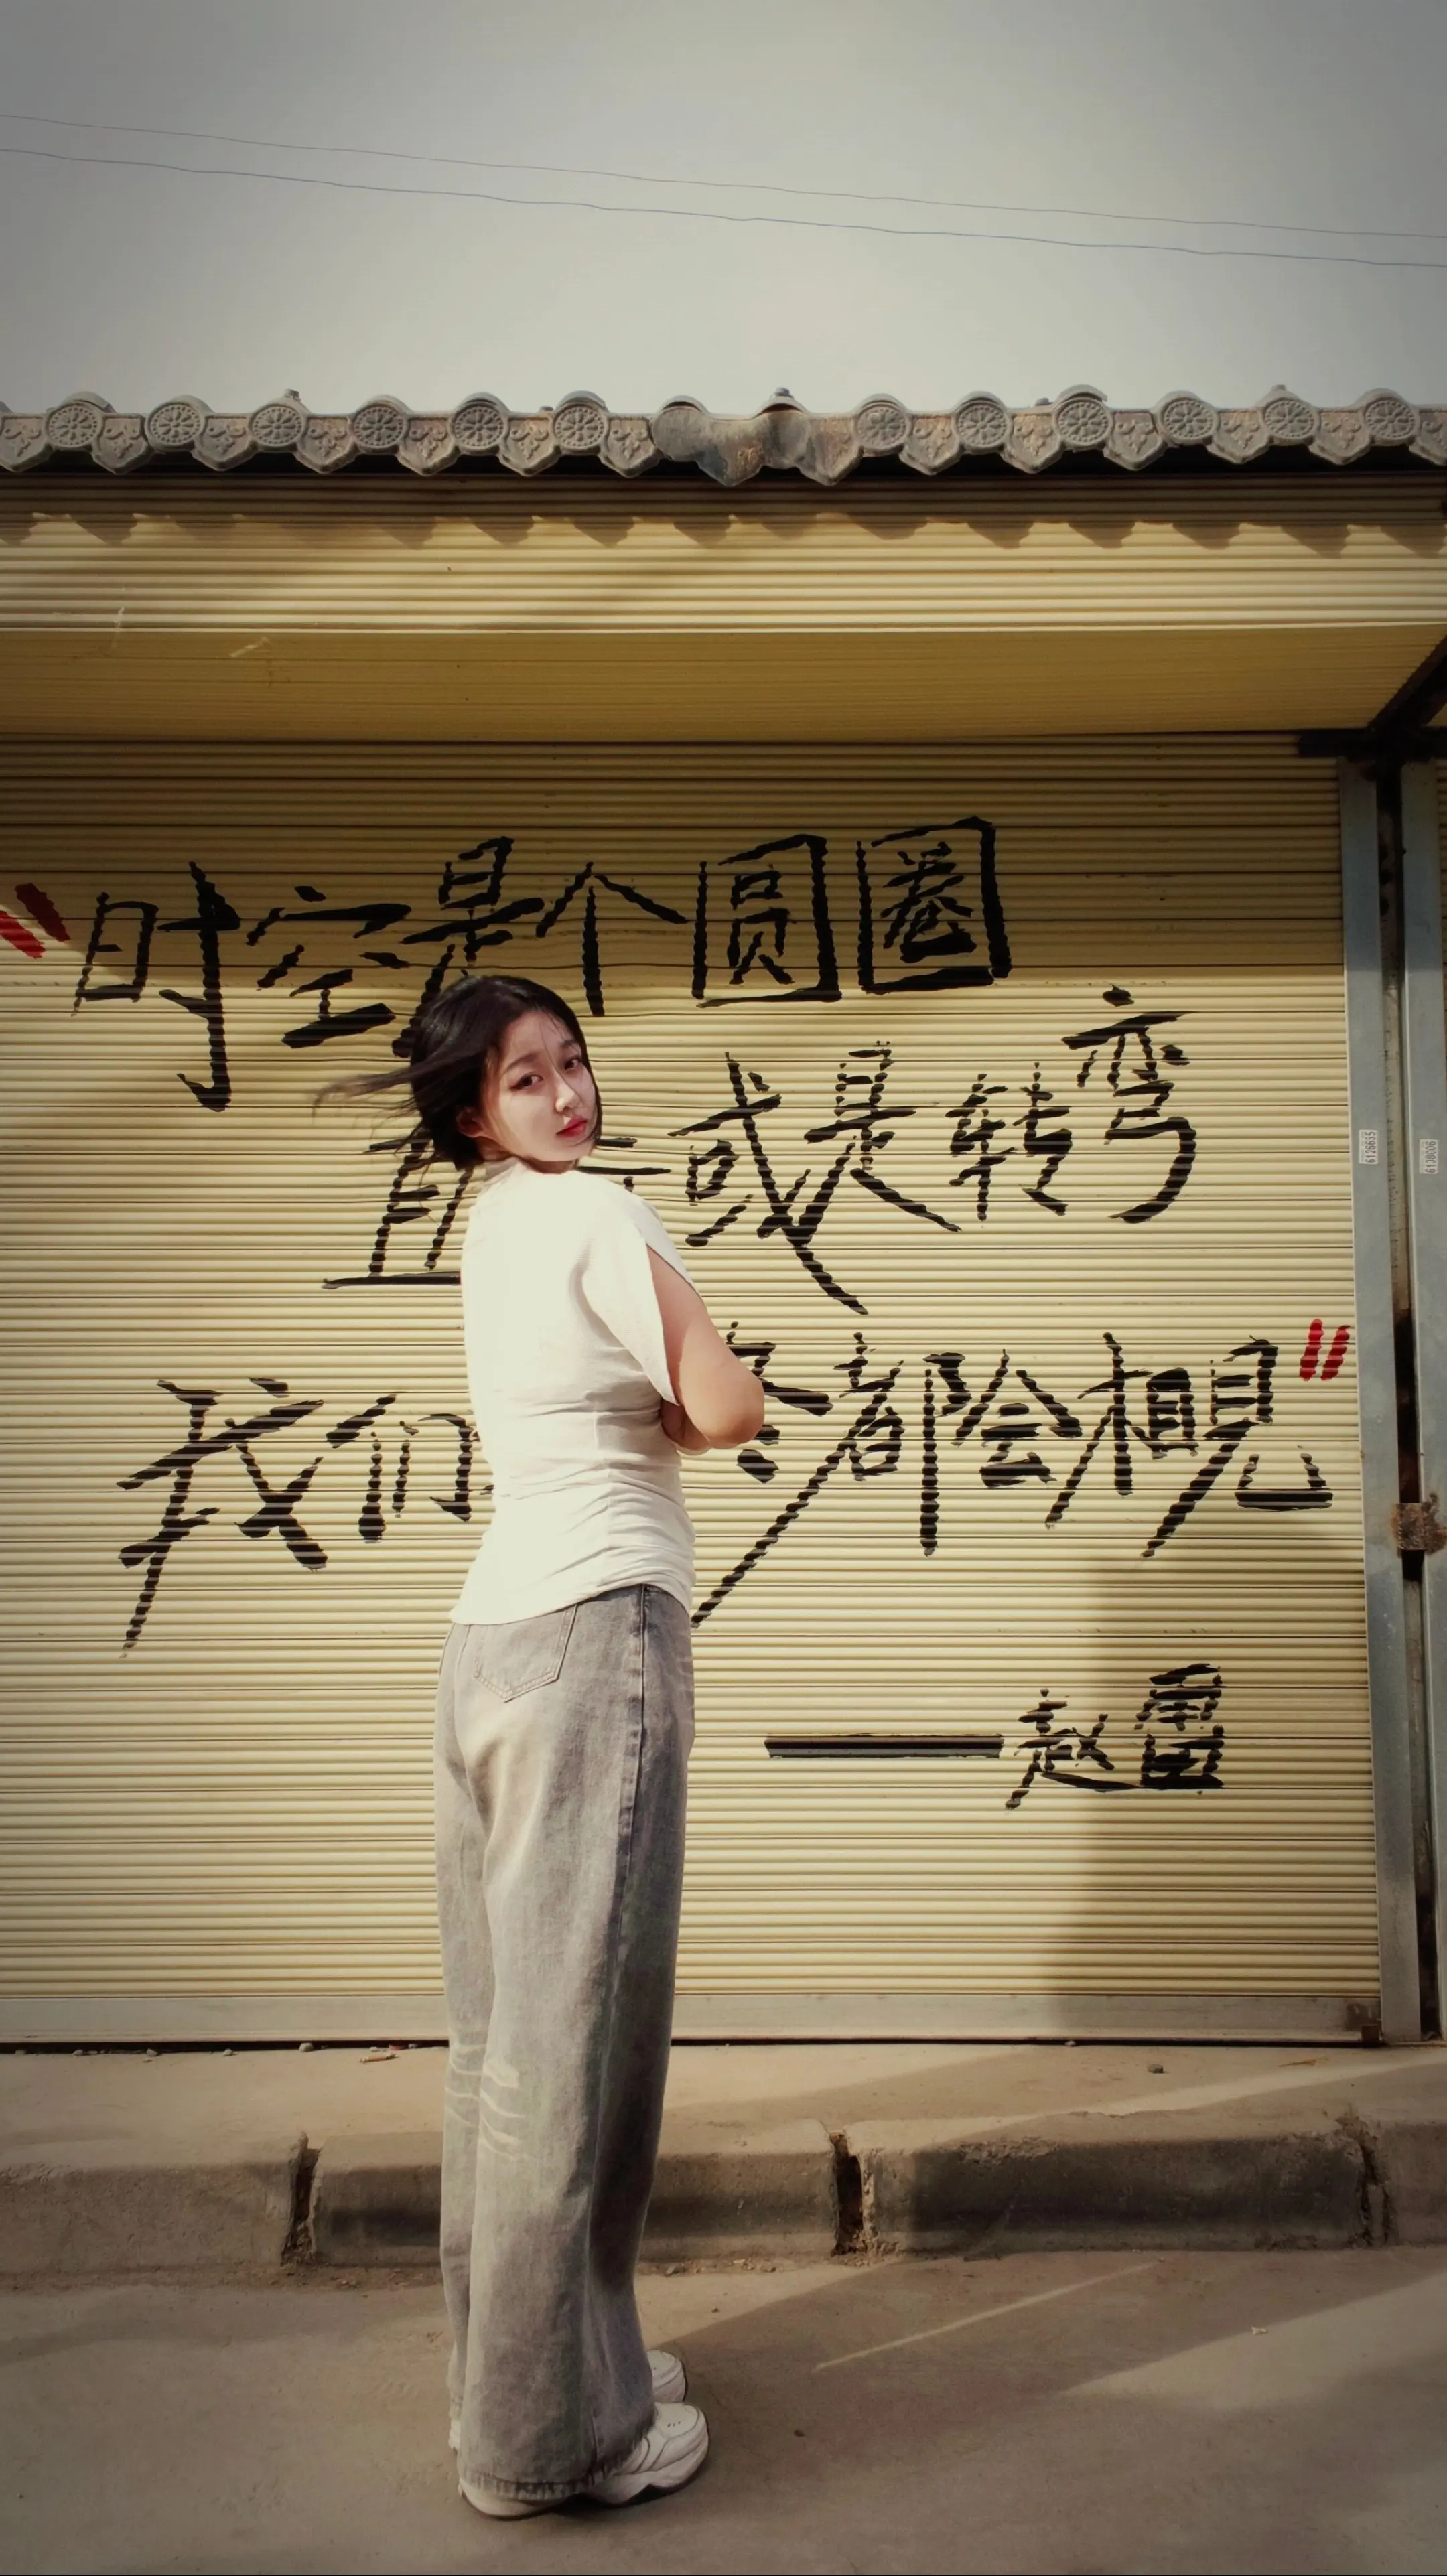 "时空是个圆圈
直 或是转弯
我们 都会相见"
——赵雷
6126655